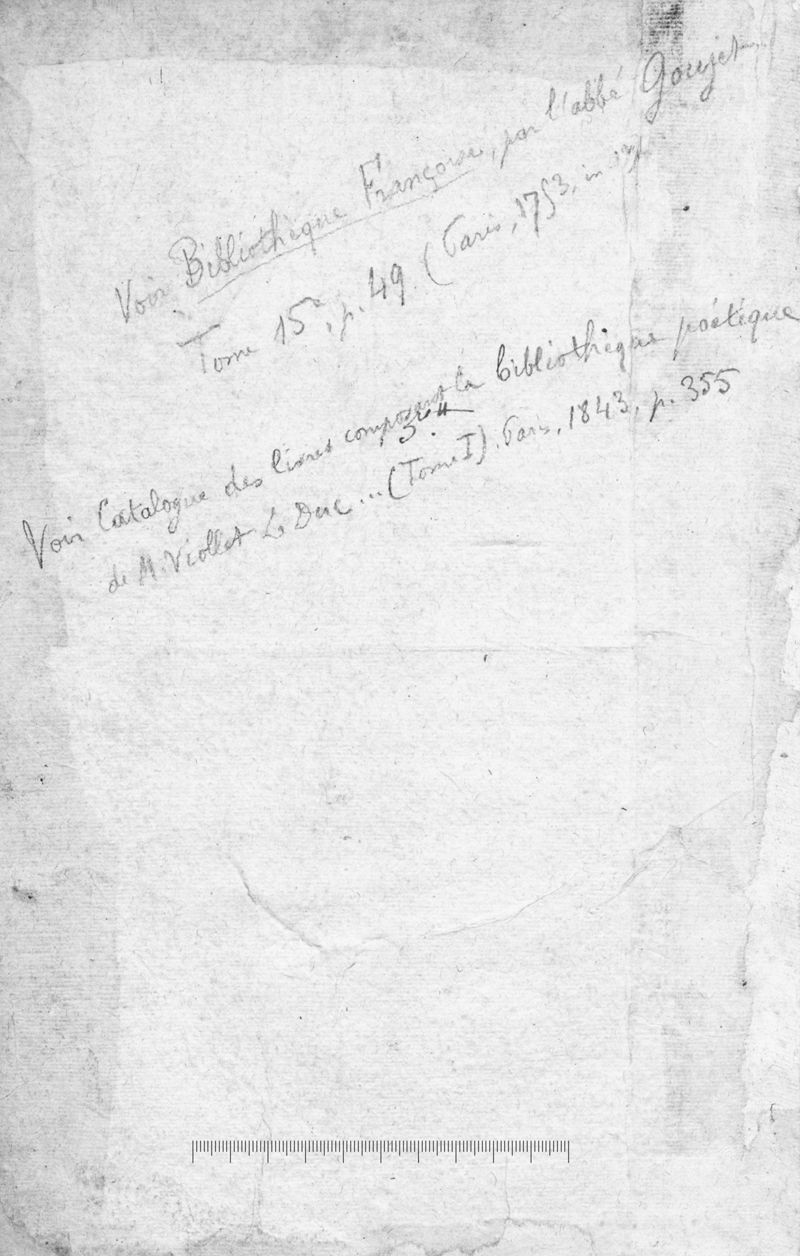 Voir Bibliothèque Françoise, par l'abbé Goujet.
Tome 15e, p. 49. (Paris, 1753, in
Voir Catalogue des livres composant la bibliothèque poétique
de M. Viollet Le Duc ... (Tome I). Paris, 1843, p. 355